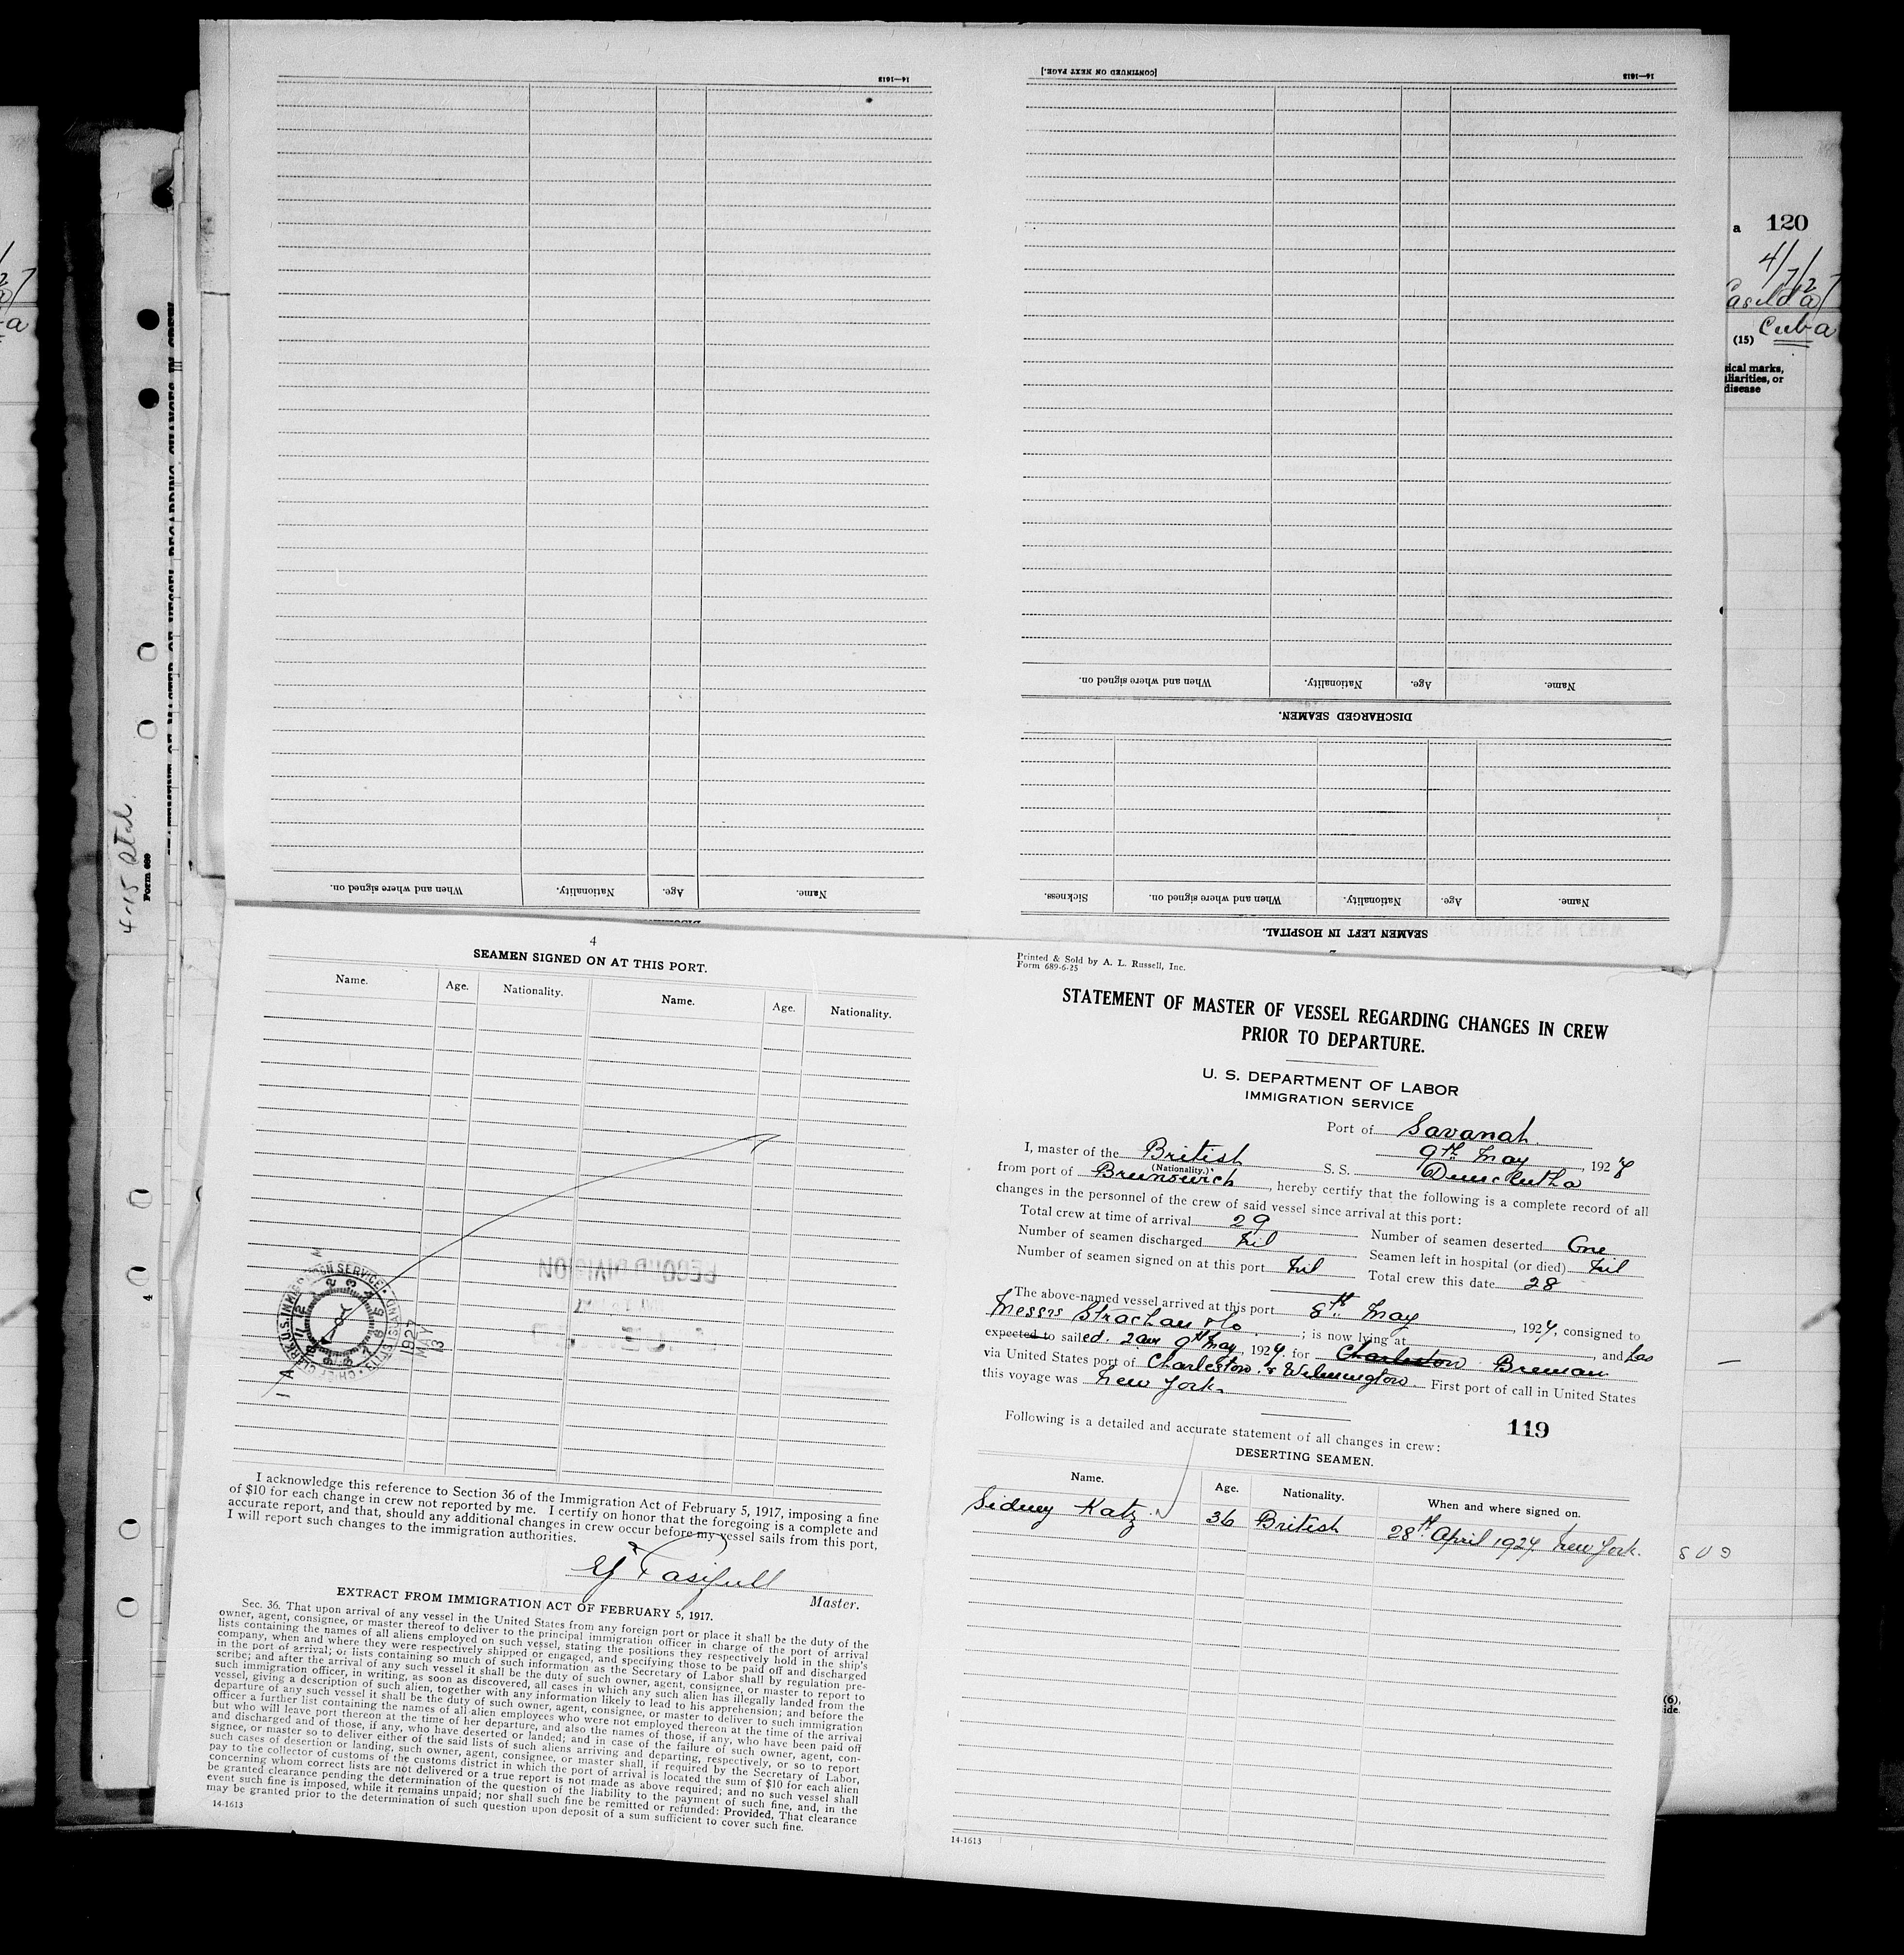 14—1613
[CONTINUED ON NEXT PAGE.]
14—1613
When and where signed on. Nationality. Age. Name.
DISCHARGED SEAMEN.
When and where signed on. Nationality. Age. Name.
Sickness. When and where signed on. Nationality. Age. Name.
SEAMEN LEFT IN HOSPITAL.
a 120
4/7/27
Casilda
Cuba
(15)
sical marks,
uliarities, or
disease
Form 689
4
4
SEAMEN SIGNED ON AT THIS PORT.
Name. Age. Nationality. Name. Age. Nationality.
RECORD DIVISION
1927
MAY
13
I acknowledge this reference to Section 36 of the Immigration Act of February 5, 1917, imposing a fine
of $10 for each change in crew not reported by me. I certify on honor that the foregoing is a complete and
accurate report, and that, should any additional changes in crew occur before my vessel sails from this port,
I will report such changes to the immigration authorities.
Master.
EXTRACT FROM IMMIGRATION ACT OF FEBRUARY 5, 1917.
Sec. 36. That upon arrival of any vessel in the United States from any foreign port or place it shall be the duty of the
owner, agent, consignee, or master thereof to deliver to the principal immigration officer in charge of the port of arrival
lists containing the names of all aliens employed on such vessel, stating the positions they respectively hold in the ship's
company, when and where they were respectively shipped or engaged, and specifying those to be paid off and discharged
in the port of arrival; or lists containing so much of such information as the Secretary of Labor shall by regulation pre-
scribe; and after the arrival of any such vessel it shall be the duty of such owner, agent, consignee, or master to report to
such immigration officer, in writing, as soon as discovered, all cases in which any such alien has illegally landed from the
vessel, giving a description of such alien, together with any information likely to lead to his apprehension; and before the
departure of any such vessel it shall be the duty of such owner, agent, consignee, or master to deliver to such immigration
officer a further list containing the names of all alien employees who were not employed thereon at the time of the arrival
but who will leave port thereon at the time of her departure, and also the names of those, if any, who have been paid off
and discharged and of those, if any, who have deserted or landed; and in case of the failure of such owner, agent, con-
signee, or master so to deliver either of the said lists of such aliens arriving and departing, respectively, or so to report
such cases of desertion or landing, such owner, agent, consignee, or master shall, if required by the Secretary of Labor,
pay to the collector of customs of the customs district in which the port of arrival is located the sum of $10 for each alien
concerning whom correct lists are not delivered or a true report is not made as above required; and no such vessel shall
be granted clearance pending the determination of the question of the liability to the payment of such fine, and, in the
event such fine is imposed, while it remains unpaid; nor shall such fine be remitted or refunded: Provided, That clearance
may be granted prior to the determination of such question upon deposit of a sum sufficient to cover such fine.
14-1613
Printed & Sold by A. L. Russell, Inc.
Form 689-6-25
STATEMENT OF MASTER OF VESSEL REGARDING CHANGES IN CREW
PRIOR TO DEPARTURE.
U. S. DEPARTMENT OF LABOR
IMMIGRATION SERVICE
Port of Savanah.
9th May, 1927
I, master of the British S. S.
(Nationality.)
from port of Brunswich, hereby certify that the following is a complete record of all
changes in the personnel of the crew of said vessel since arrival at this port:
Total crew at time of arrival 29
Number of seamen deserted One
Number of seamen discharged Nil
Seamen left in hospital (or died) Nil
Number of seamen signed on at this port Nil
Total crew this date 28
The above-named vessel arrived at this port 8th May, 1927, consigned to
Messrs Strachan & Co; is now lying at, and has
expected to sailed. 2am 9th May, 1927. for Charleston Breman
via United States port of Charleston. & Wilmington First port of call in United States
this voyage was New York.
119
Following is a detailed and accurate statement of all changes in crew:
DESERTING SEAMEN.
Name. Age. Nationality. When and where signed on.
Sidney Katz. 36 British 28th April 1927. New York.
14-1613
(6),
ide.